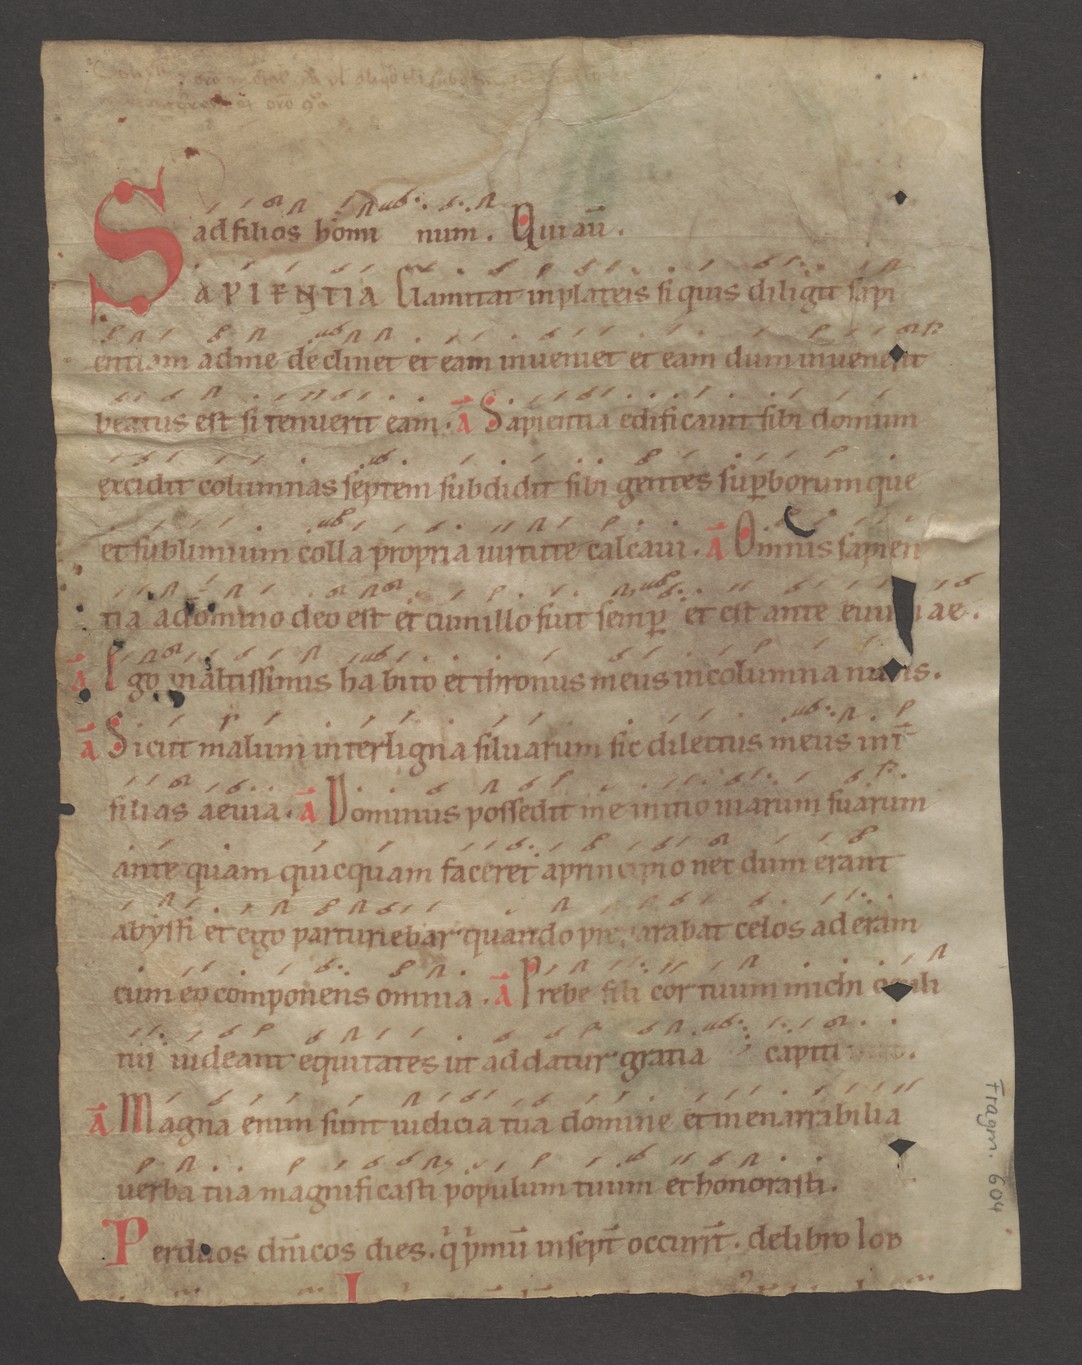 ad filios homi num. Quiaū.
SAPIENTIA Clamitat inplateis si quis diligit sapi
entiam adme declinet et eam inueniet et eam dum inuenerit
beatus est si tenuerit eam. ā Sapientia edificauit sibi domum
excidit columnas septem subdidit sibi gentes suꝑborumque
et sublimium colla propria uirtute calcauit. ā Omnis sapien
tia adomino deo est et cum illo fuit semꝑ et est ante euum ae.
ā Ego inaltissimis habito et thronus meus incolumna nubis.
ā Sicut malum interligna siluarum sic dilectus meus int̄
filias aeuia. ā Dominus possedit me initio uiarum suarum
ante quam quicquam faceret aprincipio nec dum erant
abyssi et ego parturiebar quando preparabat celos aderam
cum eo componens omnia. ā Prebe fili cor tuum michi oculi
tui uideant equitates ut addatur gratia capiti
ā Magna enim sunt iudicia tua domine et inenarrabilia
uerba tua magnificasti populum tuum et honorasti.
Per duos dn̄icos dies. occurrr̄t. delibro Iob
Fragm. 604